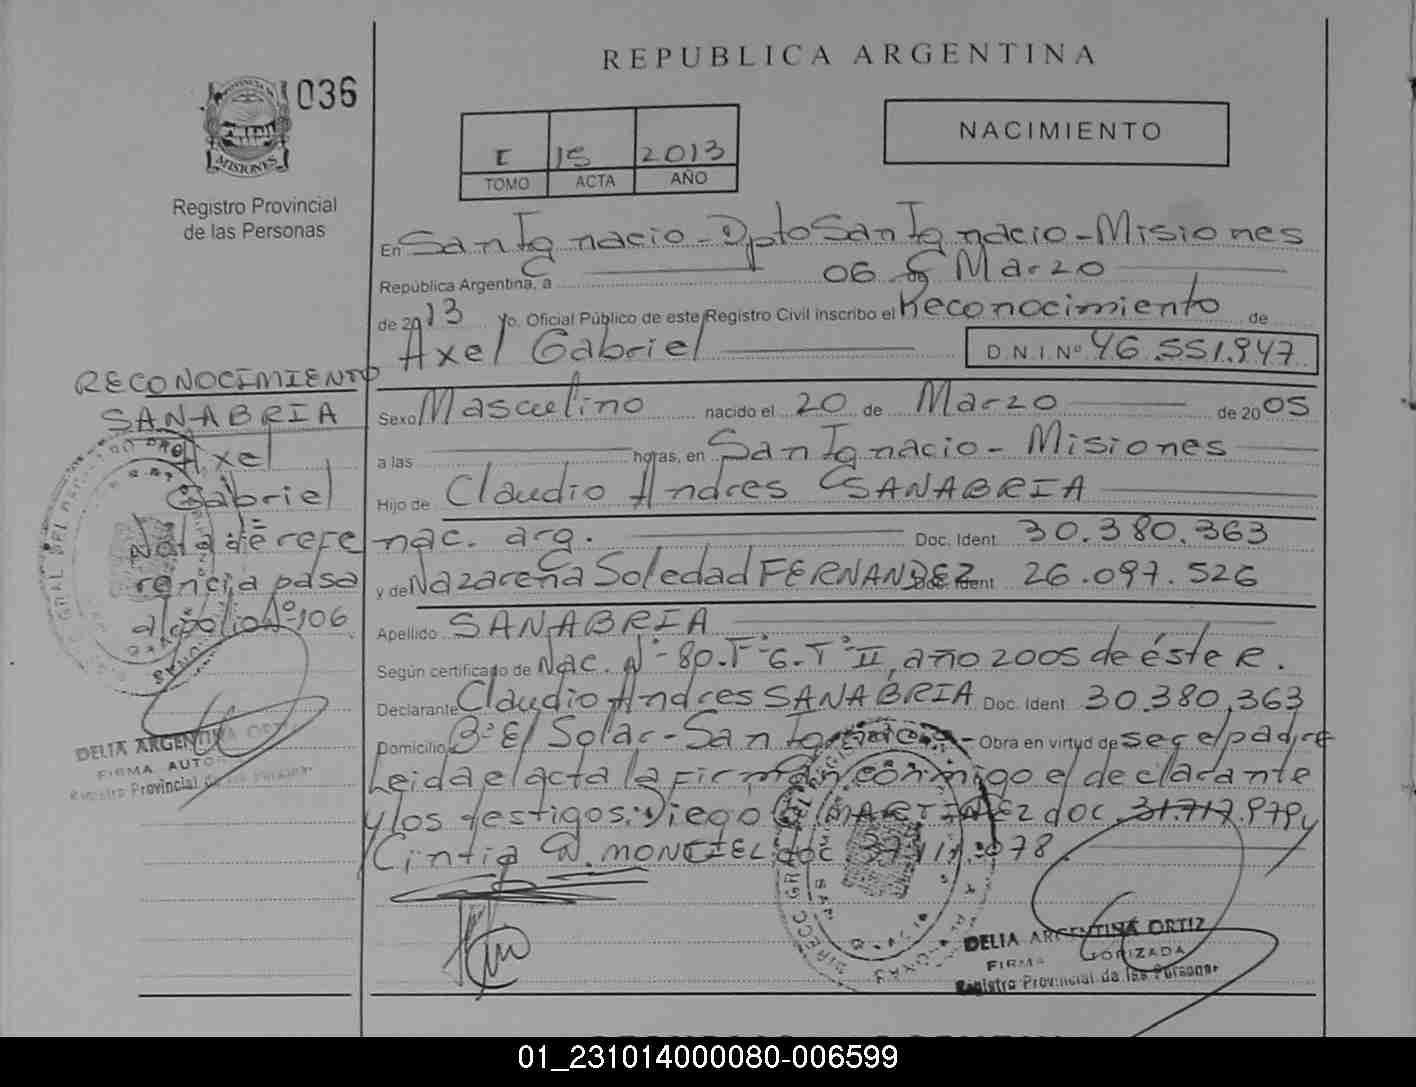 REPUBLICA ARGENTINA
036
MISIONES
Registro Provincial
de las Personas
I 15 2013
TOMO ACTA AÑO
NACIMIENTO
En San Ignacio - Dpto San Ignacio - Misiones
República Argentina, a 06 de Marzo
de 2013 yo. Oficial Público de este Registro Civil inscribo el Reconocimiento de
Axel Gabriel D.N.I. Nº 46.551.947
Sexo Masculino nacido el 20 de Marzo de 2005
a las horas, en San Ignacio - Misiones
Hijo de Claudio Andres SANABRIA
nac. arg. Doc. Ident 30.380.363
y de Nazarena Soledad FERNANDEZ Doc. Ident 26.097.526
Apellido SANABRIA
Según certificado de Nac. Nº 80. Fº 6. Tº II, año 2005 de éste R.
Declarante Claudio Andres SANABRIA Doc. Ident 30.380.363
Domicilio Bº El Solar - San Ignacio - Obra en virtud de ser el padre
Leida el acta la firman conmigo el declarante
y los testigos: Diego MARTINEZ doc. 31.717.979 y
Cintia N. MONTIEL doc
RECONOCIMIENTO
SANABRIA
Axel
Gabriel
Nota de refe
rencia pasa
al folio Nº 106
DELIA ARGENTINA ORTIZ
FIRMA AUTORIZADA
Registro Provincial de las Personas
DELIA ARGENTINA ORTIZ
FIRMA AUTORIZADA
Registro Provincial de las Personas
01_231014000080-006599